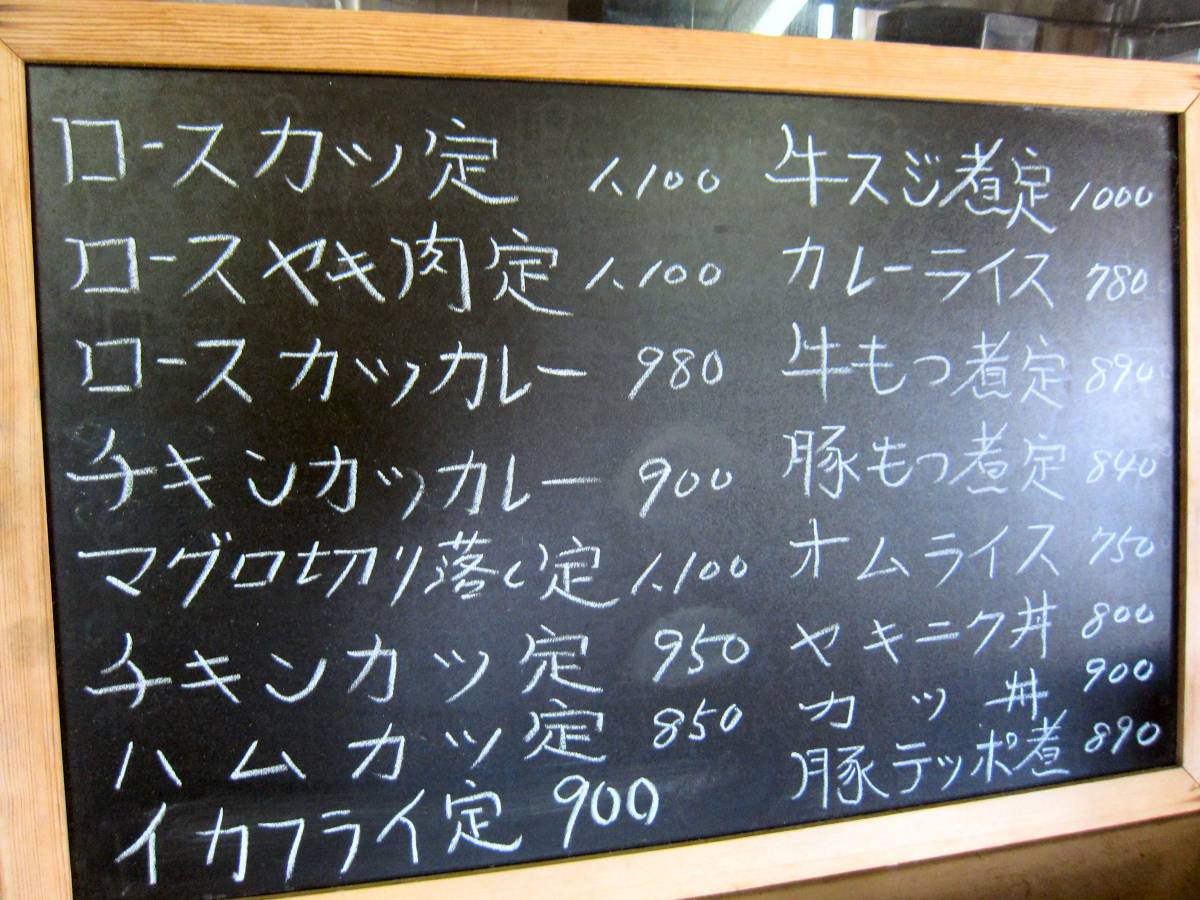 ロースカツ定 1,100
ロースヤキ肉定 1,100
ロースカツカレー 980
チキンカツカレー 900
マグロ切り落し定 1,100
チキンカツ定 950
ハムカツ定 850
イカフライ定 900
牛スジ煮定 1000
カレーライス 780
牛もつ煮定 890
豚もつ煮定 840
オムライス 750
ヤキニク丼 800
カツ丼 900
豚テッポ煮 890